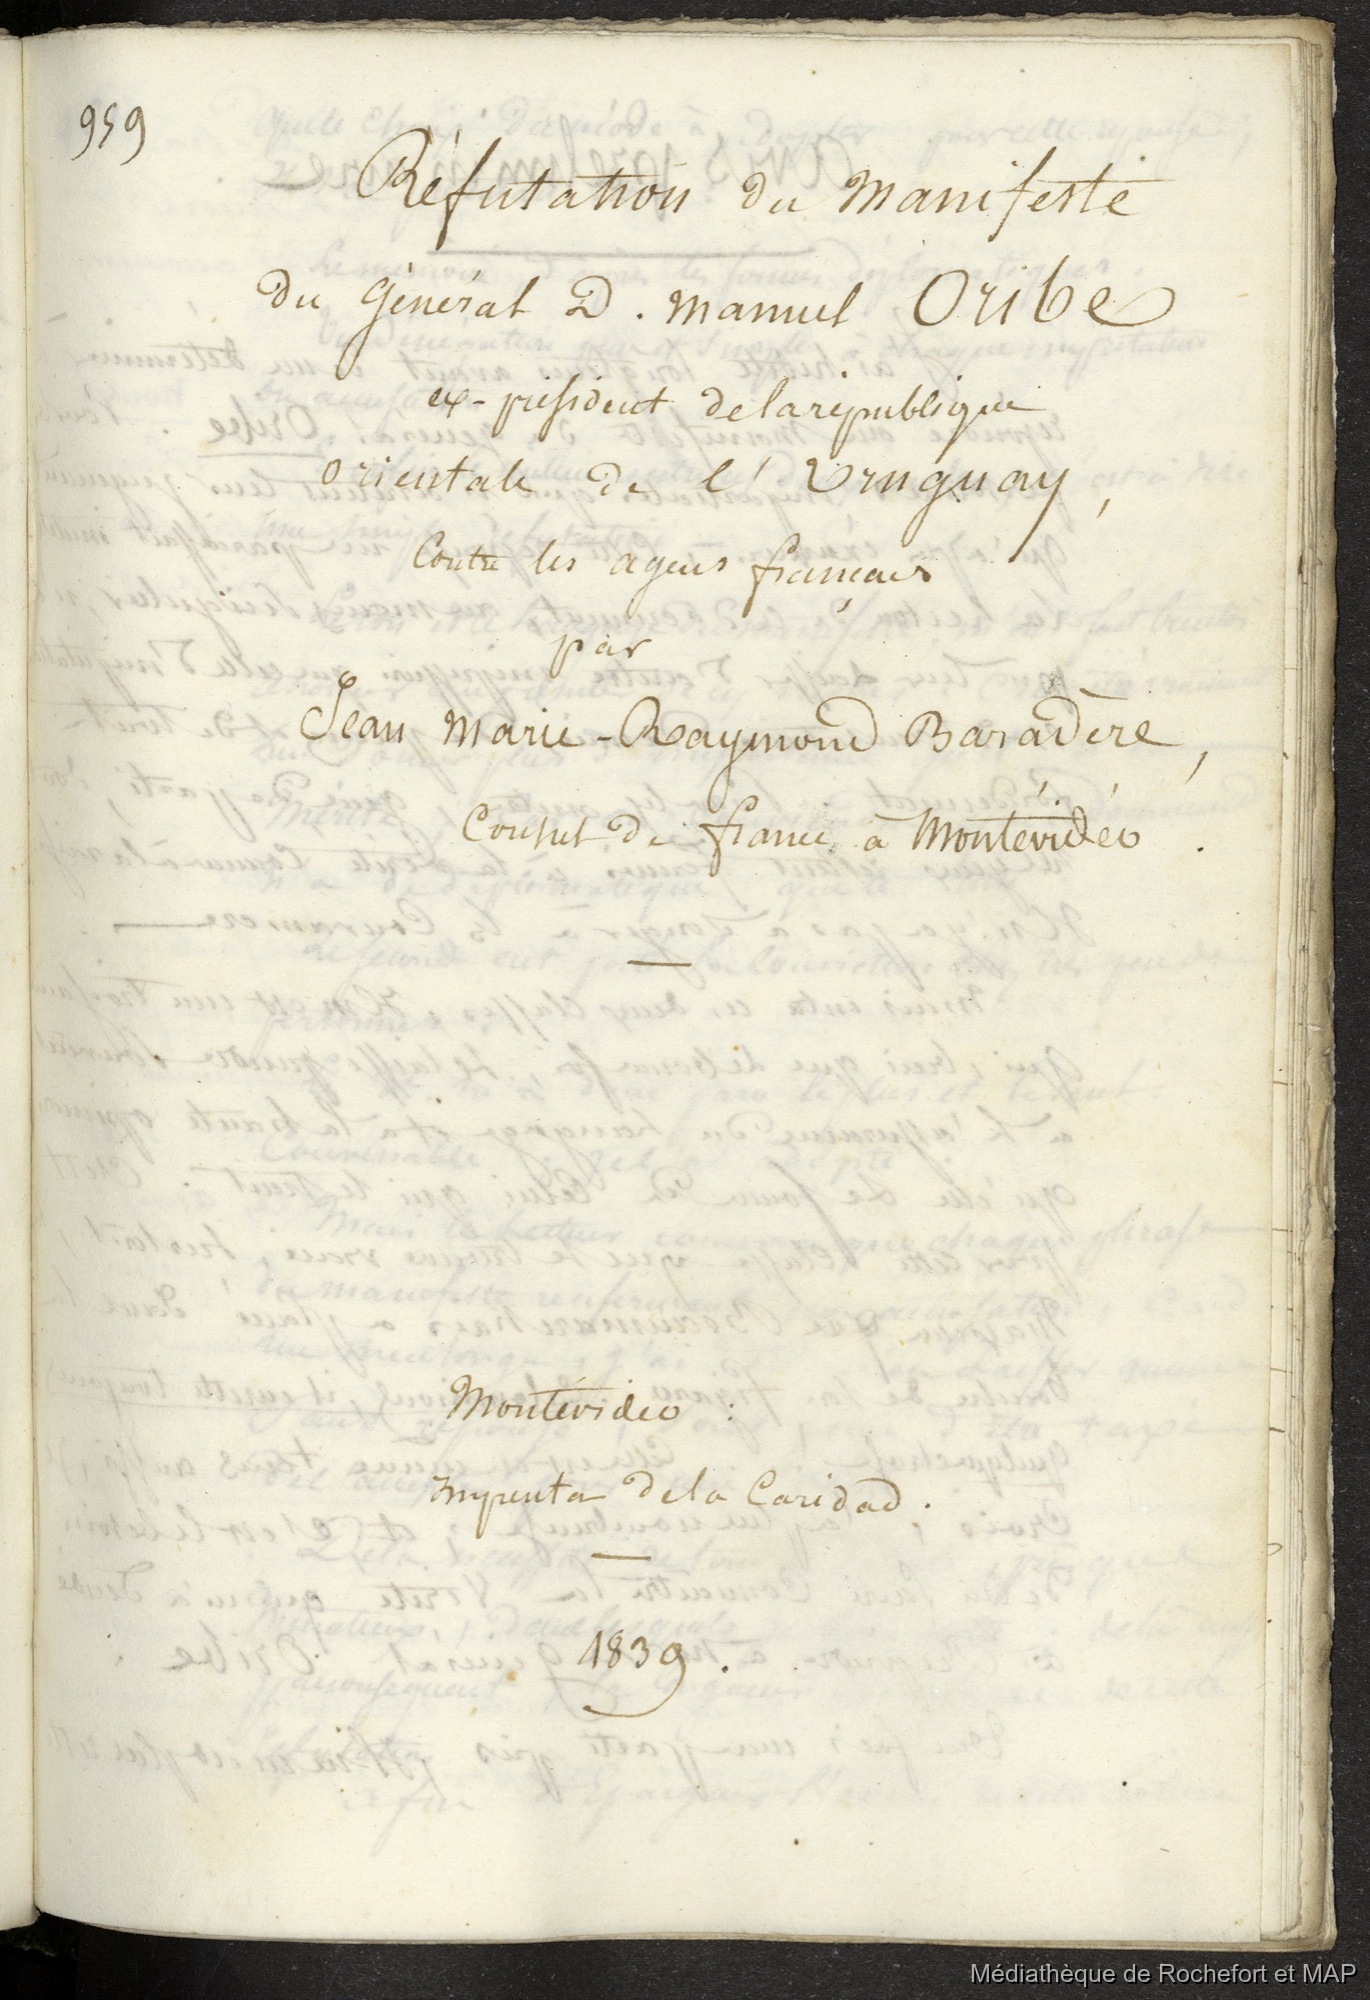 959
Réfutation du Manifeste
du Général D. Manuel Oribe
ex-président de la république
Orientale de l'Uruguay,
Contre les agens français
par
Jean Marie-Raymond Baradère,
Consul de france à Montévidéo.
Montévideo :
Imprenta de la Caridad.
1839.
Médiathèque de Rochefort et MAP